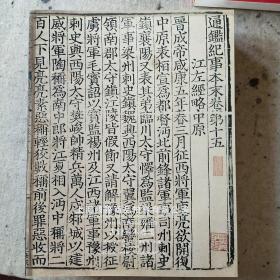 通鑑紀事本末卷第十五
江左經略中原
晉成帝咸康五年春三月征西將軍庾亮欲開復
中原表桓宣為都督沔北前鋒諸軍事司州刺史
鎮襄陽又表其弟臨川太守懌為監梁雍二州諸
軍事梁州刺史鎮魏興西陽太守翼為南蠻校尉
領南郡太守鎮江陵皆假節又請解豫州以授征
虜將軍毛寶詔以寶監揚州及江西諸軍事豫州
刺史與西陽太守樊峻帥精兵萬人戍邾城以建
威將軍陶稱為南中郎將江夏相入沔中稱將二
百人下見亮亮素惡稱輕狡數稱前後罪惡收而